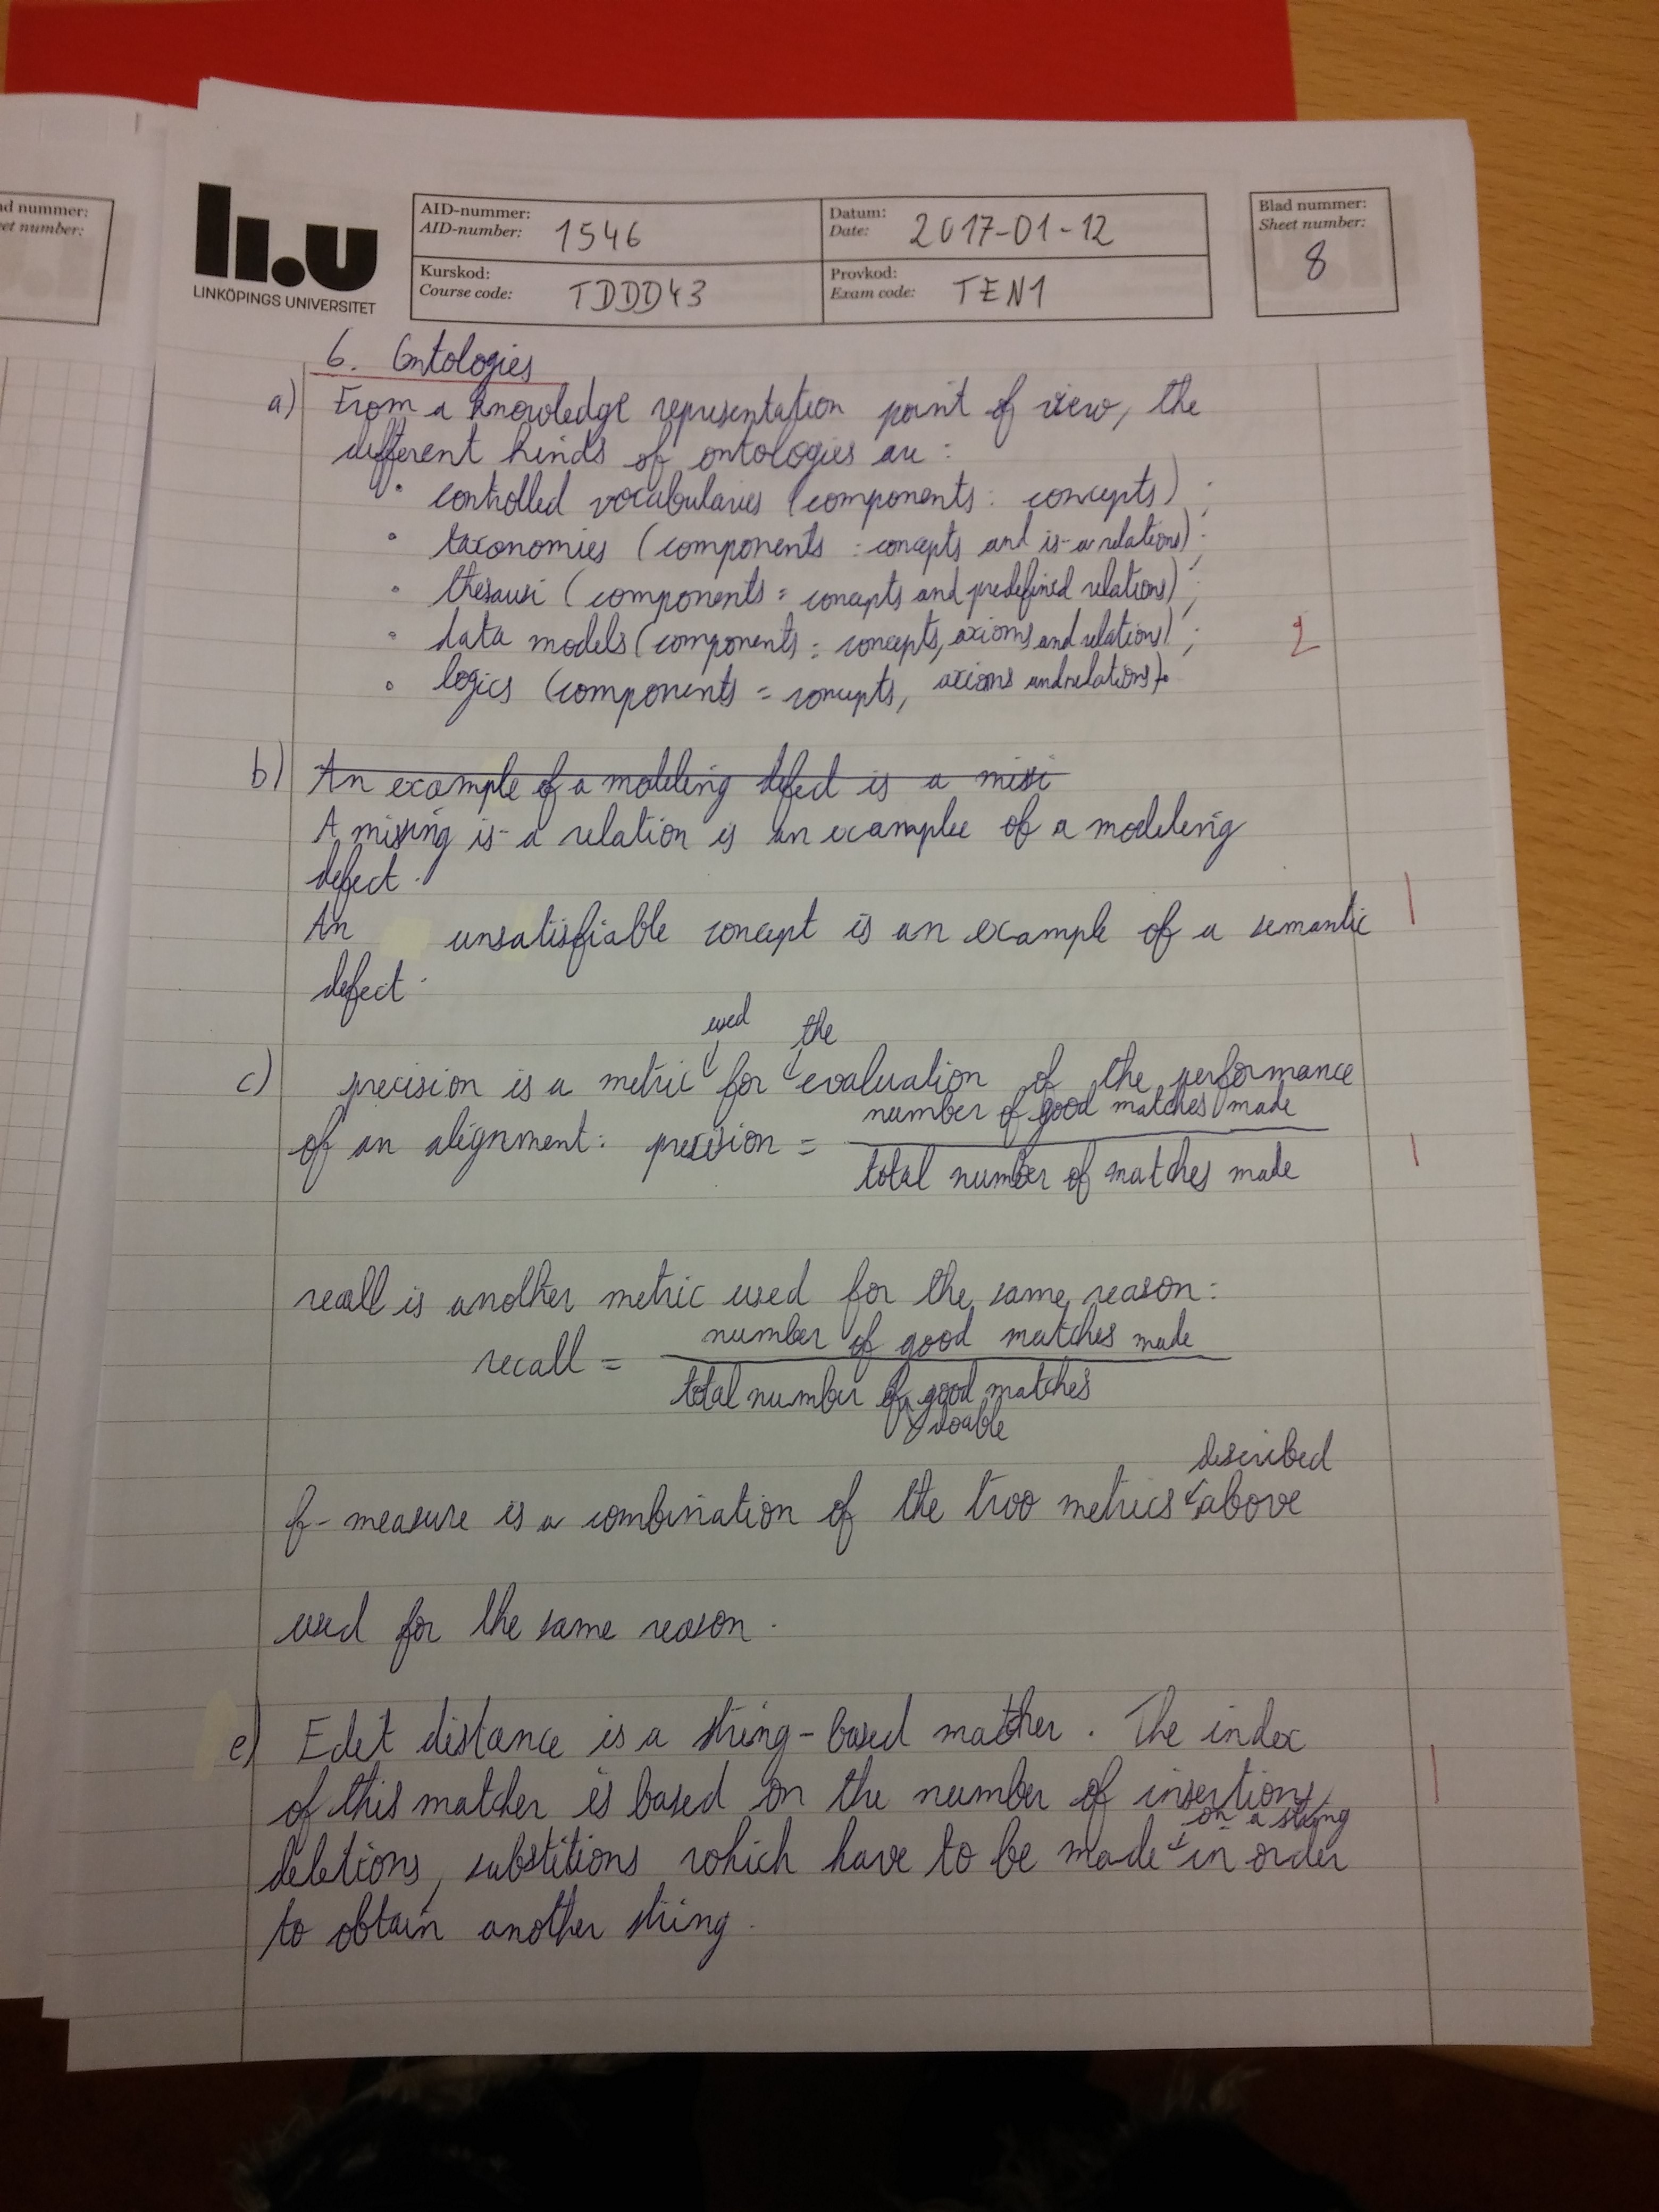 ad nummer:
eet number:
li.u
LINKÖPINGS UNIVERSITET
AID-nummer:
AID-number: 1546
Datum:
Date: 2017-01-12
Blad nummer:
Sheet number:
8
Kurskod:
Course code: TDDD43
Provkod:
Exam code: TEN1
6. Ontologies
a) From a knowledge representation point of view, the
different kinds of ontologies are :
• controlled vocabularies (components : concepts) ;
• taxonomies (components : concepts and is-a relations) ;
• thesauri (components = concepts and predefined relations) ;
• data models (components : concepts, axioms and relations) ;
2
• logics (components = concepts, axioms and relations).
b) An example of a modeling defect is a missi
A missing is-a relation is an example of a modeling
defect.
1
An unsatisfiable concept is an example of a semantic
defect.
used the
c) precision is a metric for evaluation of the performance
number of good matches made
of an alignment : precision =
1
total number of matches made
recall is another metric used for the same reason :
number of good matches made
recall =
total number of good matches
doable
described
f-measure is a combination of the two metrics above
used for the same reason.
e) Edit distance is a string-based matcher. The index
1
of this matcher is based on the number of insertions,
on a string
deletions, substitions which have to be made in order
to obtain another string.